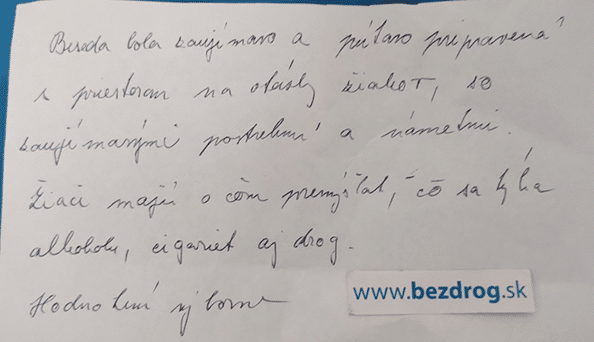 Beseda bola zaujímavo a pútavo pripravená
s priestorom na otázky žiakov, so
zaujímavými postrehmi a námetmi.
Žiaci majú o čom premýšľať, čo sa týka
alkoholu, cigariet aj drog.
Hodnotení výborne
www.bezdrog.sk